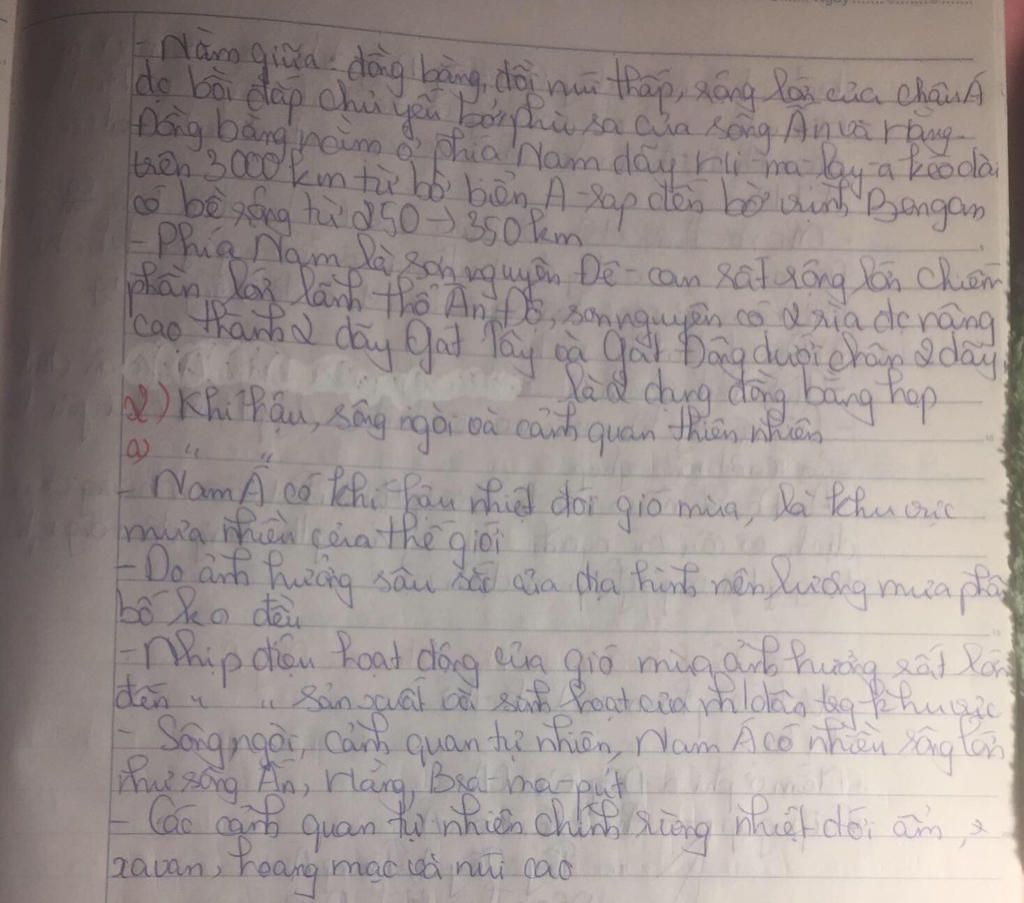 - Nằm giữa: đồng bằng, đồi núi thấp, rộng lớn của châu Á
đc bồi đắp chủ yếu bởi phù sa của sông Ấn và Hằng.
Đồng bằng nằm ở phía Nam dãy Hi-ma-lay-a kéo dài
trên 3000 km từ bờ biển A-rap đến bờ vịnh Bengan
có bề rộng từ 250 → 350 km
- Phía Nam là sơn nguyên Đê-can rất rộng lớn chiếm
phần lớn lãnh thổ Ấn Độ, sơn nguyên có 2 rìa đc nâng
cao thành 2 dãy Gat Tây và Gát Đông dưới chân 2 dãy
là 2 dung đồng bằng hẹp
2) Khí hậu, sông ngòi và cảnh quan thiên nhiên
a) " "
- Nam Á có khí hậu nhiệt đới gió mùa, là khu vực
mưa nhiều của thế giới
- Do ảnh hưởng sâu sắc của địa hình nên lượng mưa phân
bố ko đều
- Nhịp điệu hoạt động của gió mùa ảnh hưởng rất lớn
đến " " sản xuất và sinh hoạt của nhân dân tng khu vực
- Sông ngòi, cảnh quan tự nhiên, Nam Á có nhiều sông lớn
như sông Ấn, Hằng, Bra-ma-put
- Các cảnh quan tự nhiên chính rừng nhiệt đới ẩm,
xavan, hoang mạc và núi cao